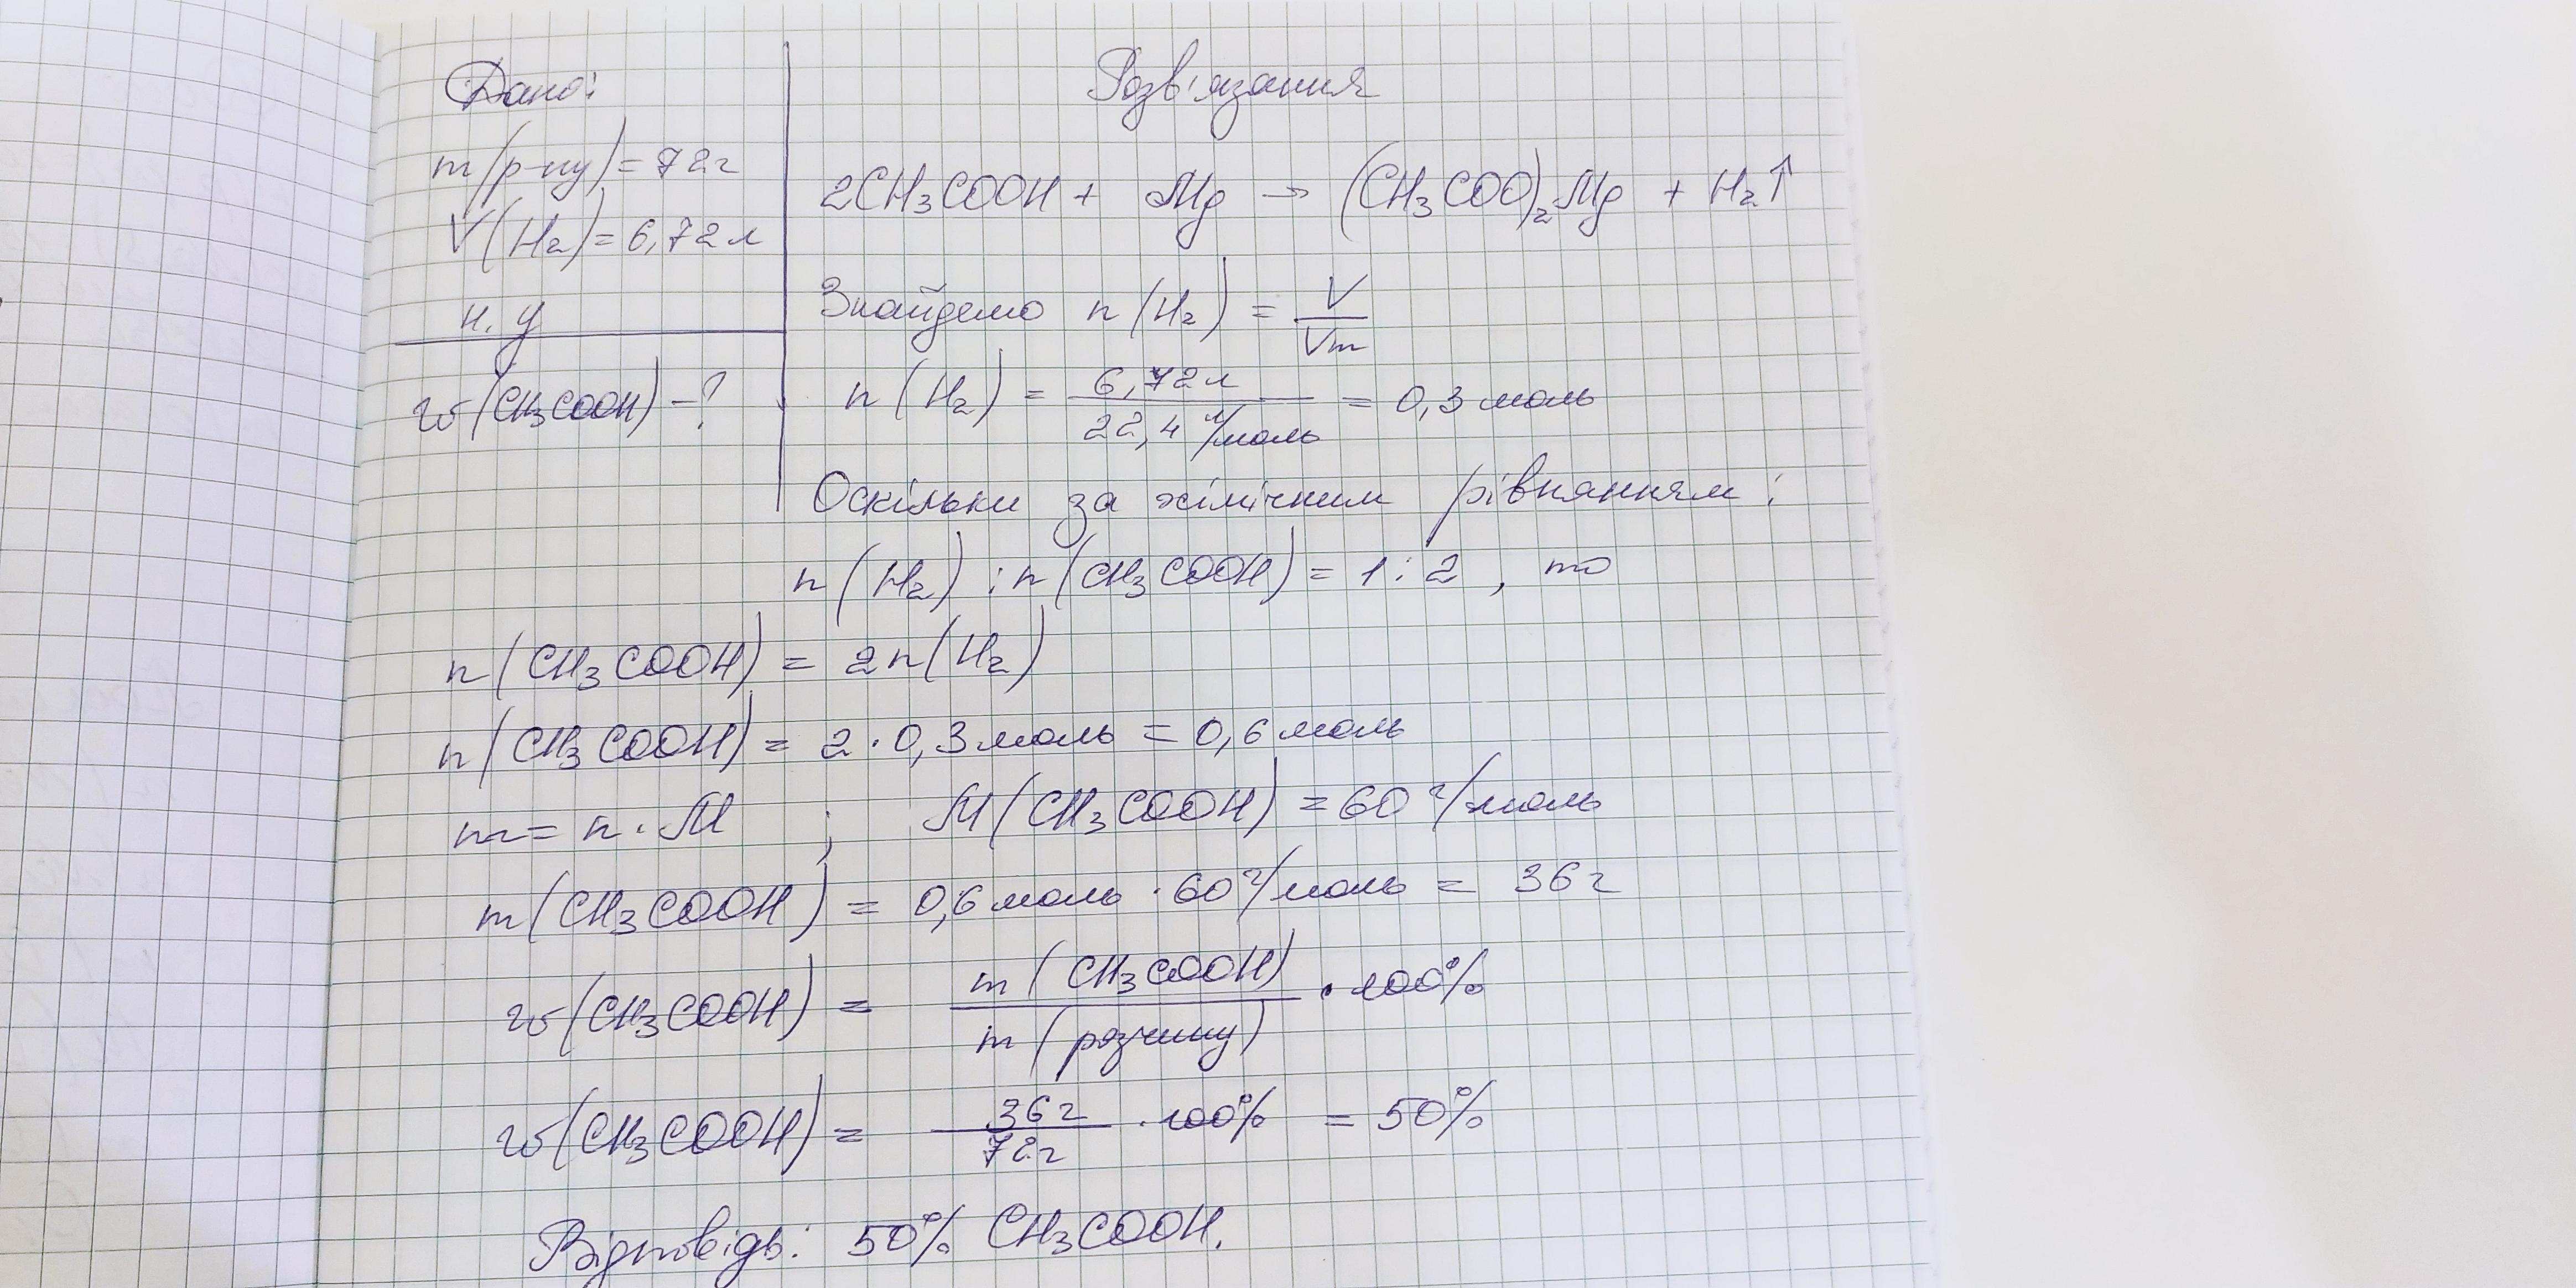 Дано:
m(р-ну) = 72 г
V(H₂) = 6,72 л
н. у
w(CH₃COOH) - ?
Розв'язання
2CH₃COOH + Mg → (CH₃COO)₂Mg + H₂↑
Знайдемо n(H₂) = V/Vm
n(H₂) = 6,72 л / 22,4 л/моль = 0,3 моль
Оскільки за хімічним рівнянням:
n(H₂) : n(CH₃COOH) = 1 : 2, то
n(CH₃COOH) = 2n(H₂)
n(CH₃COOH) = 2 · 0,3 моль = 0,6 моль
m = n · M ; M(CH₃COOH) = 60 г/моль
m(CH₃COOH) = 0,6 моль · 60 г/моль = 36 г
w(CH₃COOH) = m(CH₃COOH) / m(розчину) · 100%
w(CH₃COOH) = 36 г / 72 г · 100% = 50%
Відповідь: 50% CH₃COOH.